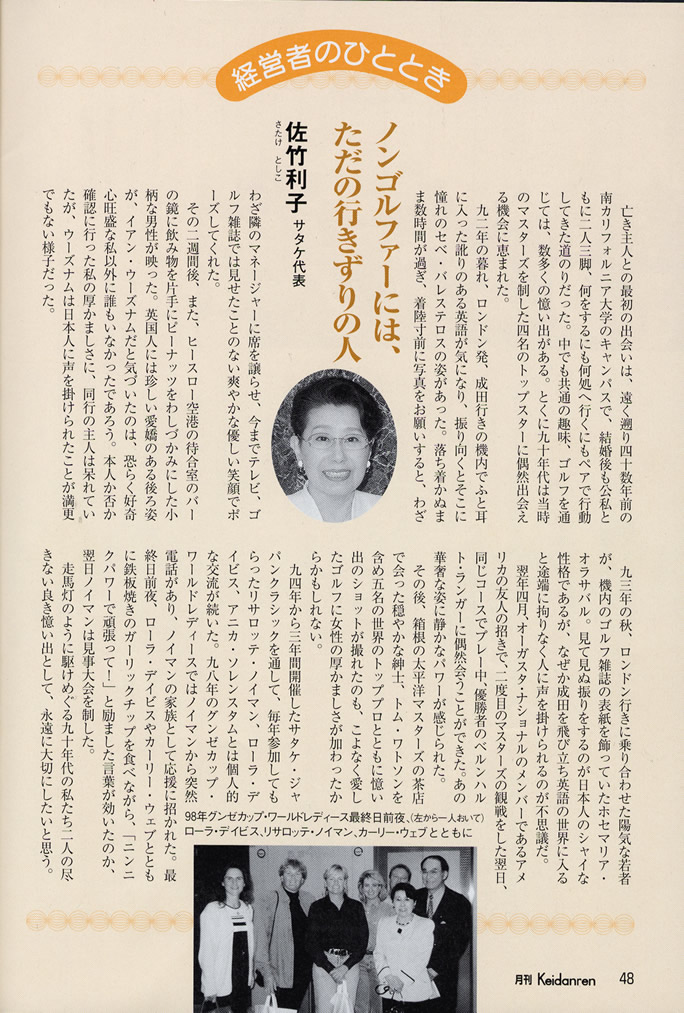 経営者のひととき
ノンゴルファーには、
ただの行きずりの人
佐竹利子 サタケ代表
さたけ としこ
亡き主人との最初の出会いは、遠く遡り四十数年前の
南カリフォルニア大学のキャンパスで、結婚後も公私と
もに二人三脚、何をするにも何処へ行くにもペアで行動
してきた道のりだった。中でも共通の趣味、ゴルフを通
じては、数多くの憶い出がある。とくに九十年代は当時
のマスターズを制した四名のトップスターに偶然出会え
る機会に恵まれた。
九二年の暮れ、ロンドン発、成田行きの機内でふと耳
に入った訛りのある英語が気になり、振り向くとそこに
憧れのセベ・バレステロスの姿があった。落ち着かぬま
ま数時間が過ぎ、着陸寸前に写真をお願いすると、わざ
わざ隣のマネージャーに席を譲らせ、今までテレビ、ゴ
ルフ雑誌では見せたことのない爽やかな優しい笑顔でポ
ーズしてくれた。
その二週間後、また、ヒースロー空港の待合室のバー
の鏡に飲み物を片手にピーナッツをわしづかみにした小
柄な男性が映った。英国人には珍しい愛嬌のある後ろ姿
が、イアン・ウーズナムだと気づいたのは、恐らく好奇
心旺盛な私以外に誰もいなかったであろう。本人か否か
確認に行った私の厚かましさに、同行の主人は呆れてい
たが、ウーズナムは日本人に声を掛けられたことが満更
でもない様子だった。
九三年の秋、ロンドン行きに乗り合わせた陽気な若者
が、機内のゴルフ雑誌の表紙を飾っていたホセマリア・
オラサバル。見て見ぬ振りをするのが日本人のシャイな
性格であるが、なぜか成田を飛び立ち英語の世界に入る
と途端に拘りなく人に声を掛けられるのが不思議だ。
翌年四月、オーガスタ・ナショナルのメンバーであるアメ
リカの友人の招きで、二度目のマスターズの観戦をした翌日、
同じコースでプレー中、優勝者のベルンハル
ト・ランガーに偶然会うことができた。あの
華奢な姿に静かなパワーが感じられた。
その後、箱根の太平洋マスターズの茶店
で会った穏やかな紳士、トム・ワトソンを
含め五名の世界のトッププロとともに憶い
出のショットが撮れたのも、こよなく愛し
たゴルフに女性の厚かましさが加わったか
らかもしれない。
九四年から三年間開催したサタケ・ジャ
パンクラシックを通して、毎年参加しても
らったリサロッテ・ノイマン、ローラ・デ
イビス、アニカ・ソレンスタムとは個人的
な交流が続いた。九八年のグンゼカップ・
ワールドレディースではノイマンから突然
電話があり、ノイマンの家族として応援に招かれた。最
終日前夜、ローラ・デイビスやカーリー・ウェブととも
に鉄板焼きのガーリックチップを食べながら、「ニンニ
クパワーで頑張って!」と励ました言葉が効いたのか、
翌日ノイマンは見事大会を制した。
走馬灯のように駆けめぐる九十年代の私たち二人の尽
きない良き憶い出として、永遠に大切にしたいと思う。
98年グンゼカップ・ワールドレディース最終日前夜、(左から一人おいて)
ローラ・デイビス、リサロッテ・ノイマン、カーリー・ウェブとともに
月刊 Keidanren 48